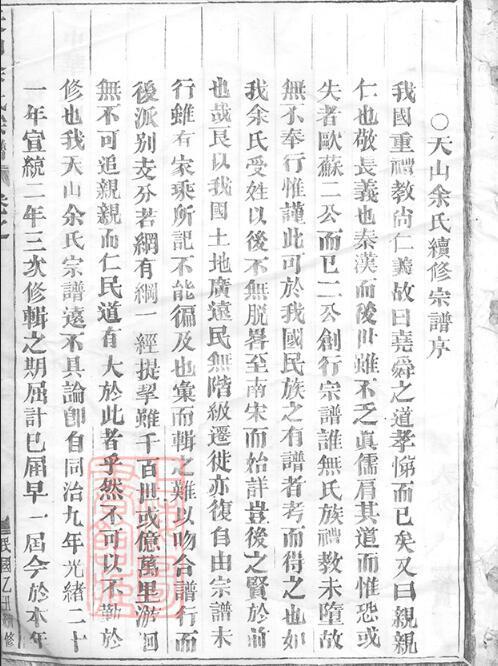 ○天山余氏續修宗譜序
我國重禮教尙仁義故曰堯舜之道孝悌而已矣又曰親親
仁也敬長義也秦漢而後世雖不乏眞儒肩其道而惟恐或
失者歐蘇二公而已二公創行宗譜誰無氏族禮教未墮故
無不奉行惟謹此可於我國民族之有譜者考而得之也如
我余氏受姓以後不無脫畧至南宋而始詳豈後之賢於前
也哉良以我國土地廣遠民無階級遷徙亦復自由宗譜未
行雖有家乘所記不能徧及也彙而輯之難以吻合譜行而
後派別支分若網有綱一經提挈雖千百世或億萬里游泂
無不可追親親而仁民道有大於此者乎然不可以不勤於
修也我天山余氏宗譜遠不具論卽自同治九年光緒二十
一年宣統二年三次修輯之期屈計已屆早一屆今於本年
民國乙丑續修